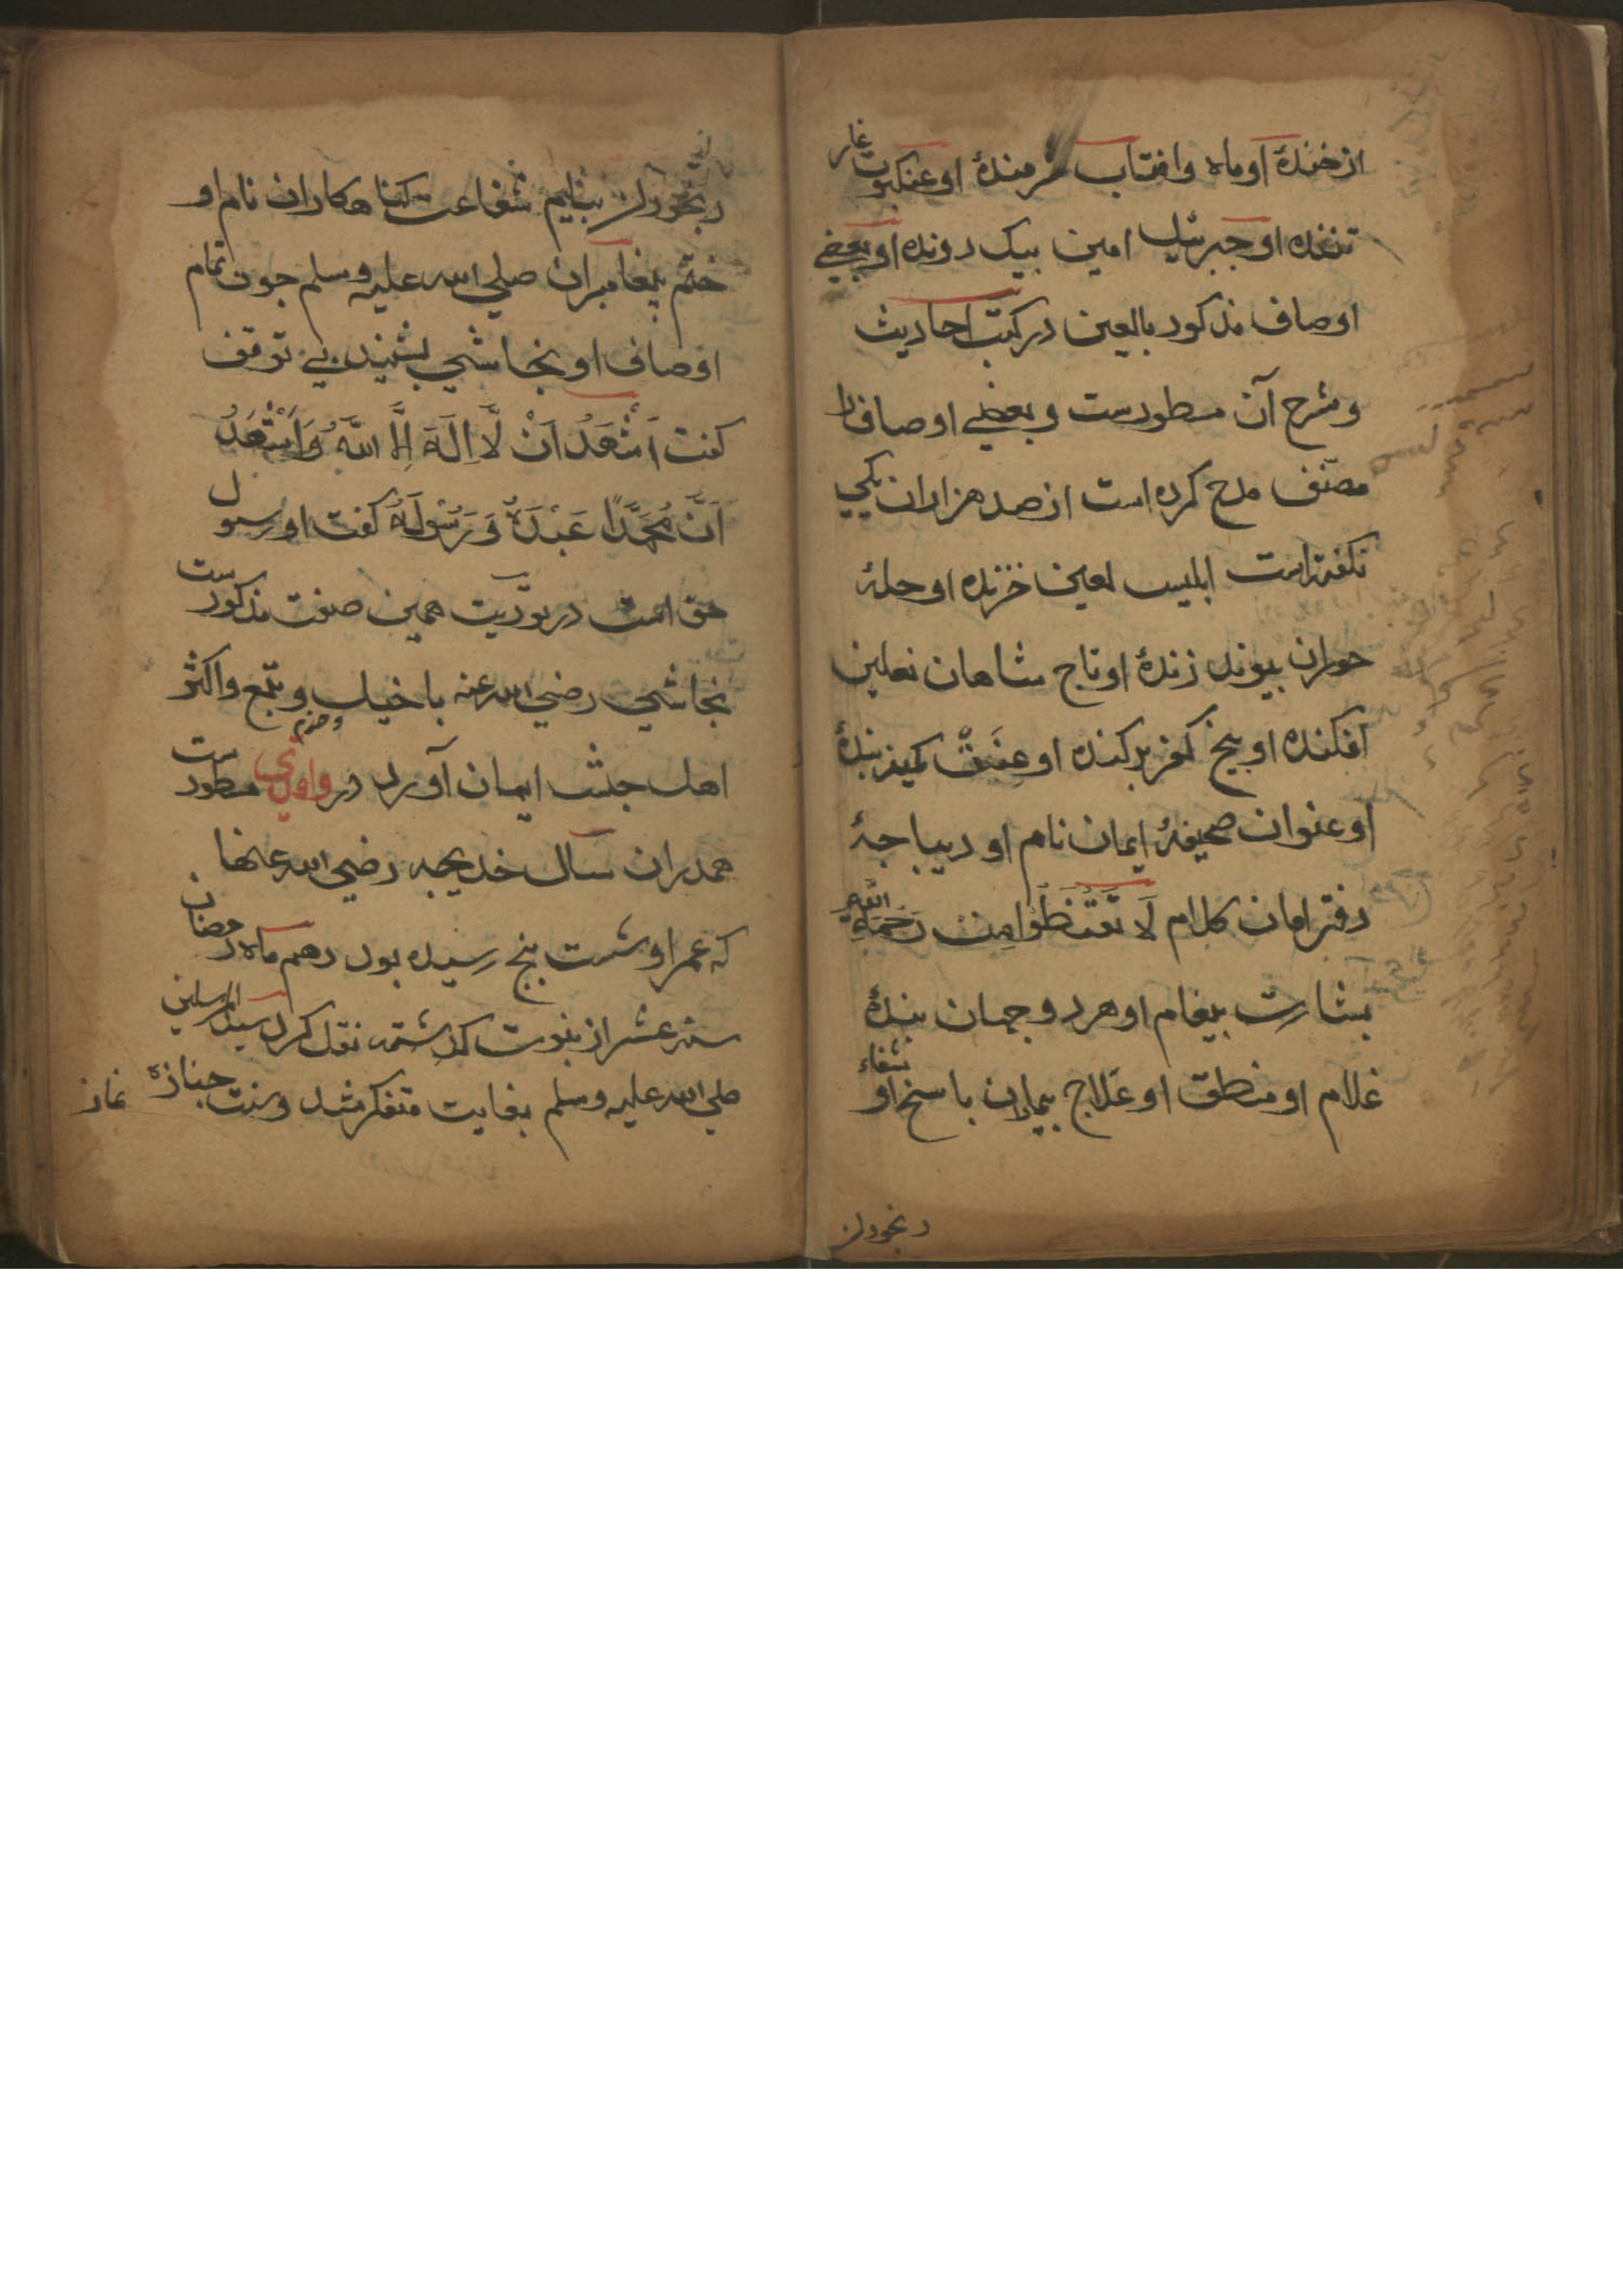 از خندهٔ او ماه وافتاب شرمندهٔ او عنکبوت غار
تننده او جبرئیل امین بیک دونده او بعضی
اوصاف مذکور بالعین در کتب احادیث
و شرح آن مسطورست و بعضی اوصاف را
مصنف مدح کرده است از صد هزاران یکی
نکفته است ابلیس لعین خزنده او حلهٔ
حوران بیوند ژندهٔ او تاج شاهان نعلین
افکنده او بیخ کفر برکنده او کمینه بندهٔ
او عنوان صحیفهٔ ایمان نام او دیباجهٔ
دفتر امان کلام لَا تَقْنَطُوا مِنْ رَحْمَةِ اللّٰهِ
بشارت بیغام او هر دو جهان بندهٔ
غلام او منطق او علاج بیماران باسخ او شفاء
رنجوران
رنجوران بنایم شفاعت کناهکاران نام او
ختم بیغامبران صلی الله علیه وسلم جون تمام
اوصاف او نجاشی بشنید بی توقف
کفت اَشْهَدُ اَنْ لَّا اِلَهَ اِلَّا اللّٰهُ وَاَشْهَدُ
اَنَّ مُحَمَّدًا عَبْدُهٗ وَرَسُولُهُ کفت او رسول
حق است در توریت همین صفت مذکورست
نجاشی رضی الله عنه با خیل و تبع واکثر
اهل حبش ایمان آورد در مسطورست
همدران سال خدیجه رضی الله عنها
که عمر او شست بنج رسیده بود دهم ماه رمضان
سنه عشر از نبوت کذشته نقل کرد سید المرسلین
صلی الله علیه وسلم بغایت متفکر شد وسنت جنازه نماز